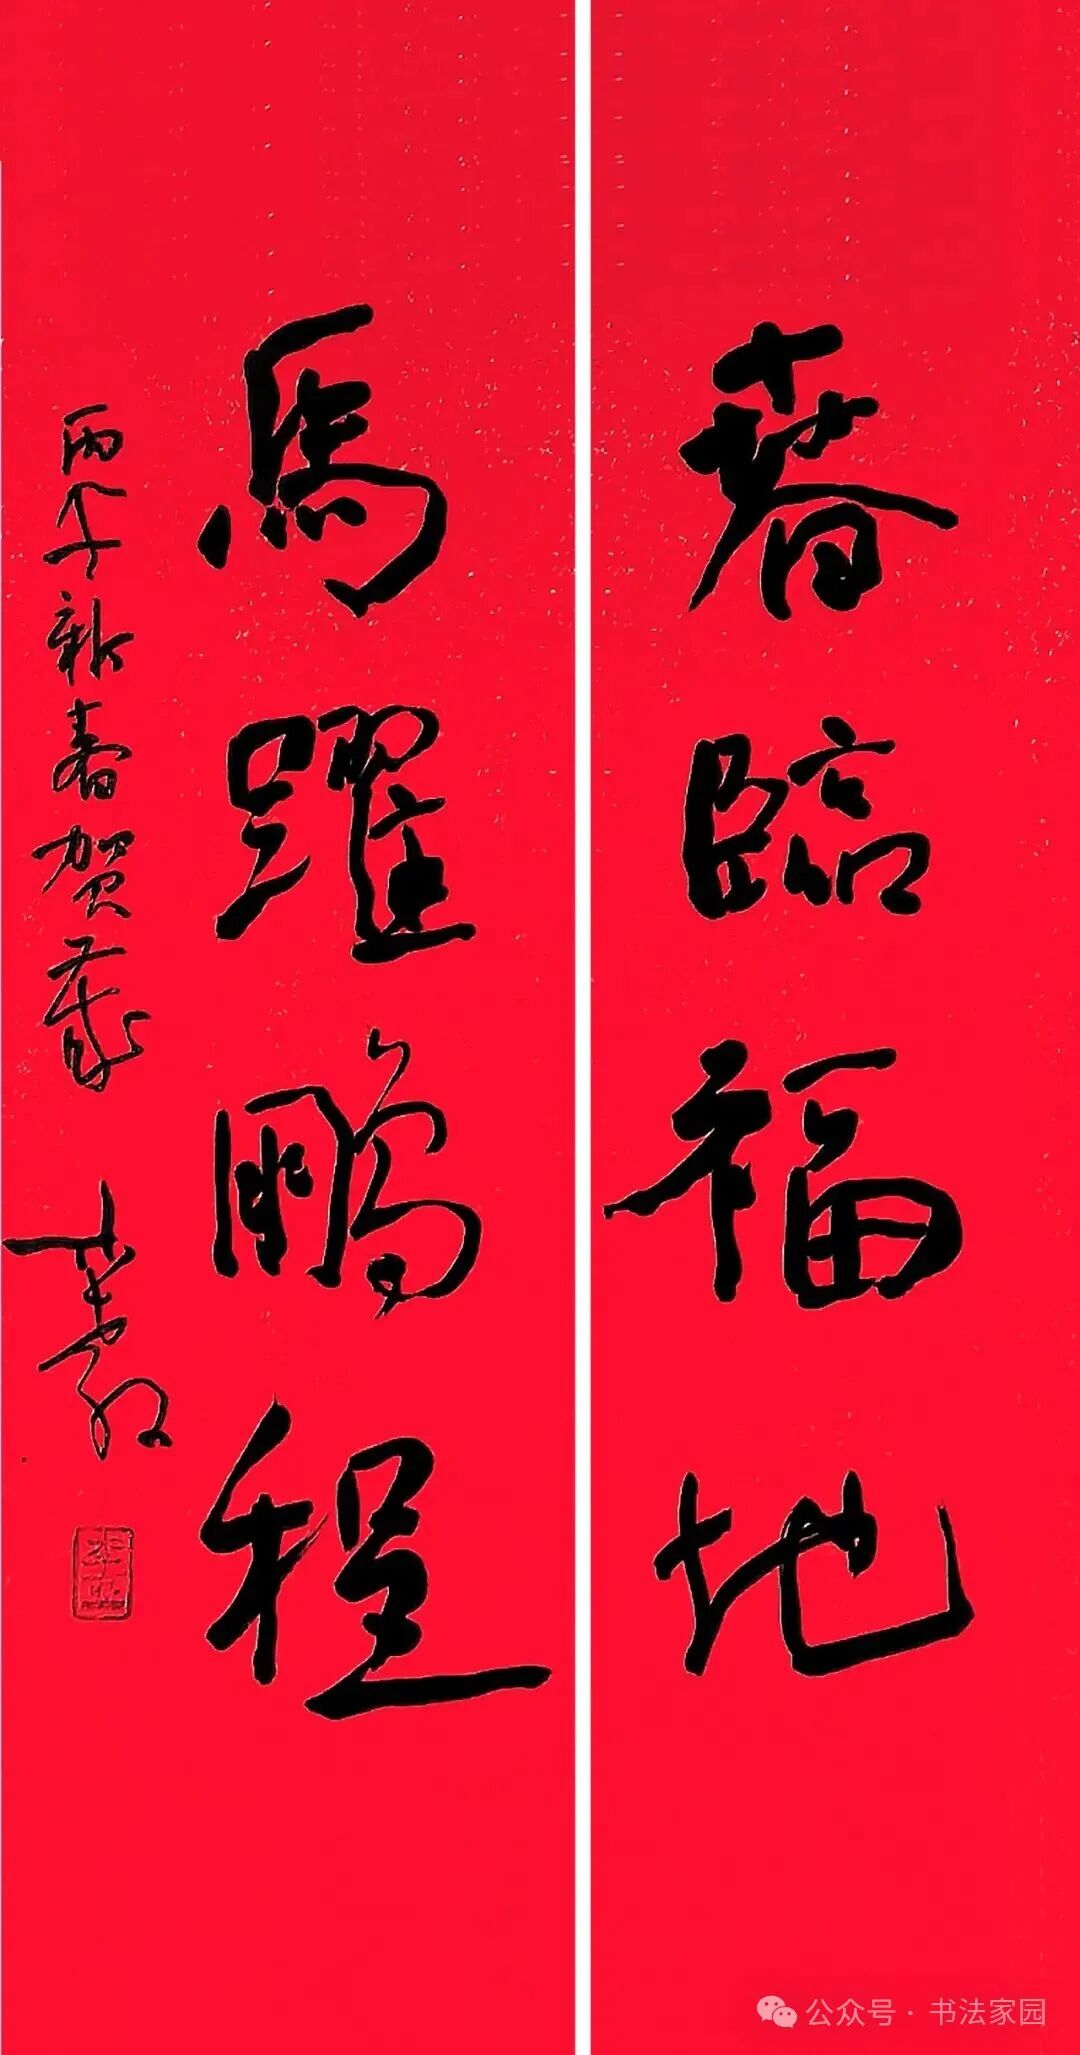 春臨福地
馬躍鵬程
丙午新春賀歲
公众号·书法家园